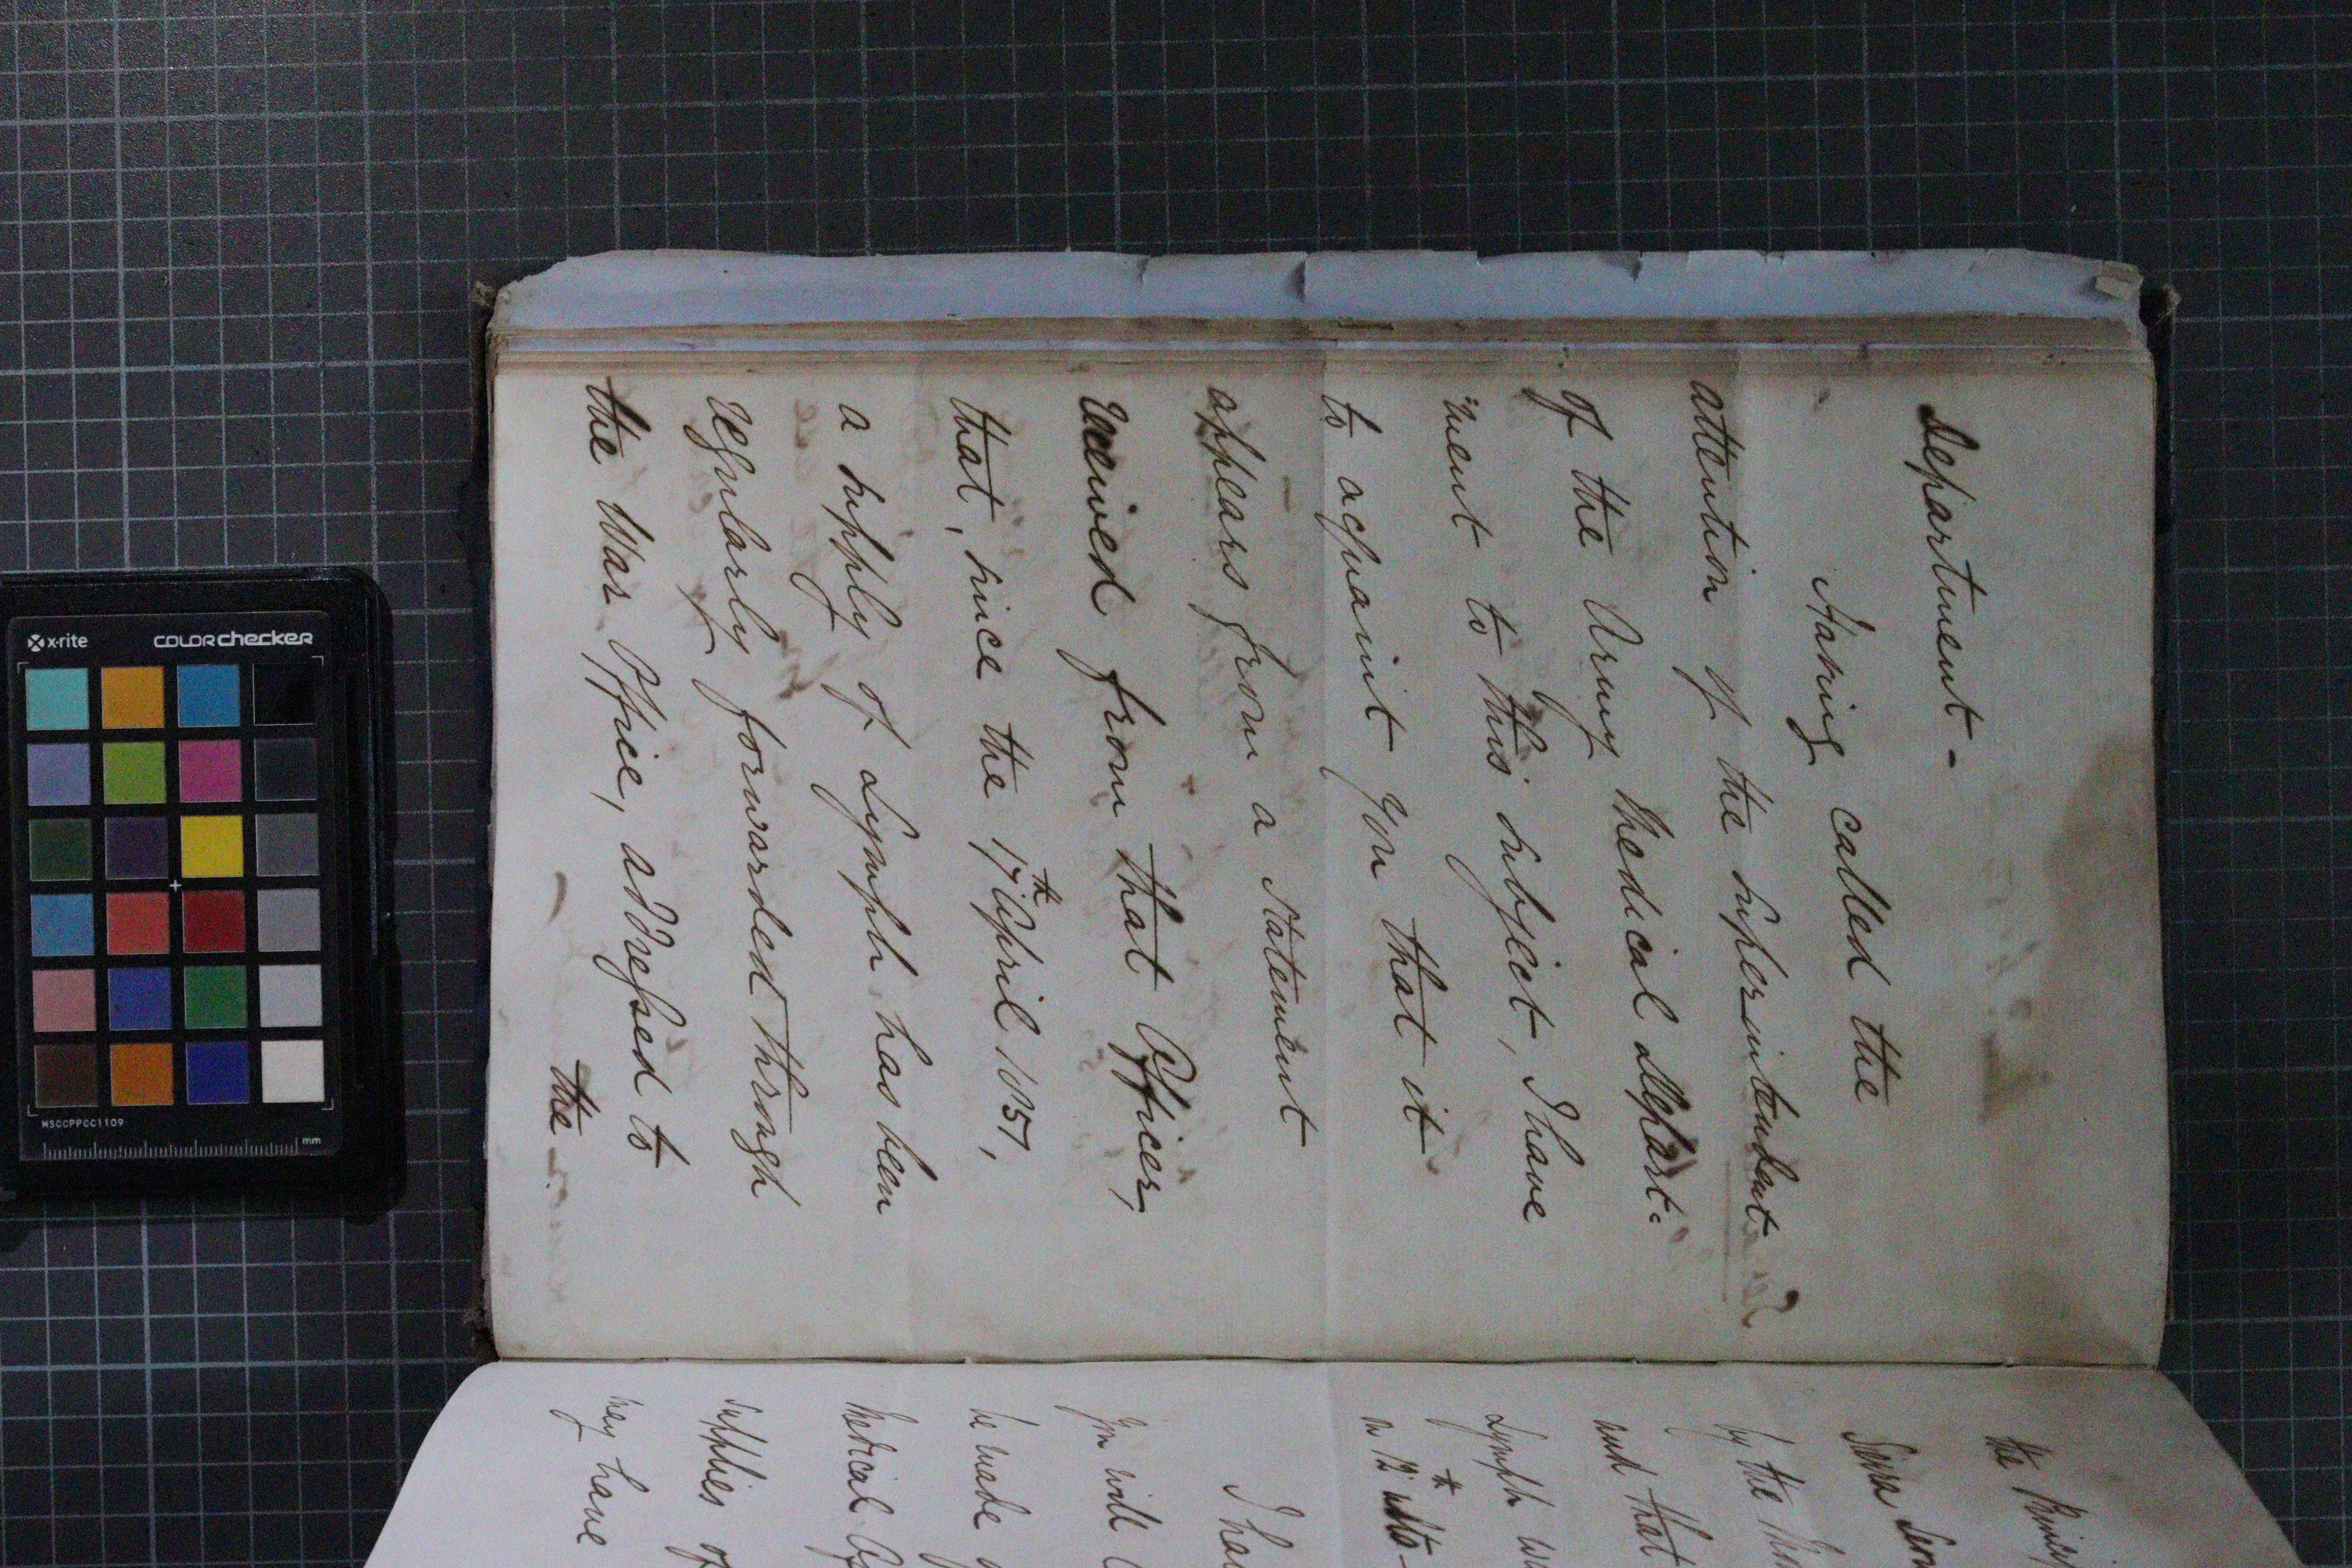 Department -
Having called the
attention of the Superintendent
of the Army Medical Depart-
ment to this subject, I have
to acquaint you that it
appears from a Statement
received from that Officer,
that, since the 17th April 1857,
a supply of Lymph has been
regularly forwarded through
the War Office, addressed to
the
the
Sierra
by the
and that
Lymph
I
You will
be made
Medical
supplies of
may have
x-rite
COLORchecker
MSCCPPCC1109
mm